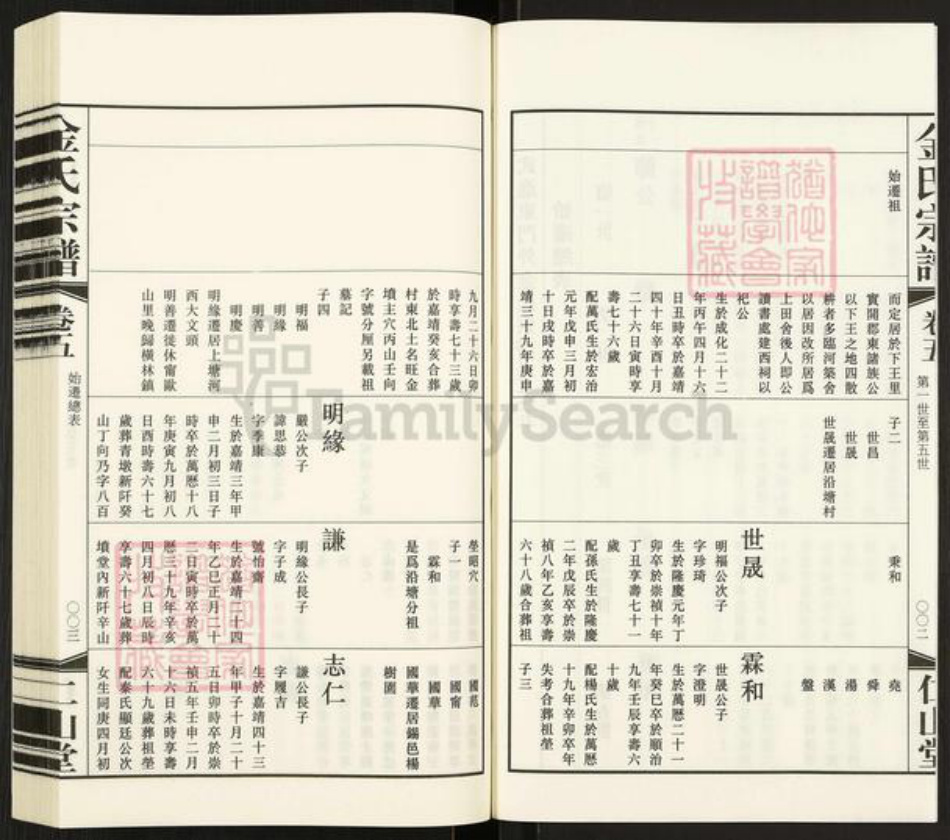 始遷祖
而定居於下王里
實開郡東諸族公
以下王之地四散
耕者多臨河築舍
以居因改所居爲
上田舍後人即公
讀書處建西祠以
祀公
生於成化二十二
年丙午四月十六
日丑時卒於嘉靖
四十年辛酉十月
二十六日寅時享
壽七十六歲
配萬氏生於宏治
元年戊申三月初
十日戌時卒於嘉
靖三十九年庚申
子二
世昌
世晟
世晟遷居沿塘村
秉和
世晟
明福公次子
字珍琦
生於隆慶元年丁
卯卒於崇禎十年
丁丑享壽七十一
歲
配孫氏生於隆慶
二年戊辰卒於崇
禎八年乙亥享壽
六十八歲合葬祖
堯
舜
湯
漢
盤
霖和
世晟公子
字澄明
生於萬曆二十一
年癸巳卒於順治
九年壬辰享壽六
十歲
配楊氏生於萬曆
十九年辛卯卒年
失考合葬祖塋
子三
金氏宗譜
卷五
第一世至第五世
〇〇二
仁山堂
九月二十六日卯
時享壽七十三歲
於嘉靖癸亥合葬
村東北土名旺金
墳主穴丙山壬向
字號分厘另載祖
墓記
子四
明福
明緣
明善
明慶
明緣遷居上塘河
西大文頭
明善遷徙休甯歐
山里晚歸橫林鎮
明緣
嚴公次子
諱思恭
字季康
生於嘉靖三年甲
申二月初三日子
時卒於萬曆十八
年庚寅九月初八
日酉時壽六十七
歲葬青墩新阡癸
山丁向乃字八百
塋昭穴
子一
霖和
是爲沿塘分祖
謙
明緣公長子
字子成
號怡齋
生於嘉靖二十四
年乙巳正月二十
二日寅時卒於萬
曆三十九年辛亥
四月初八日辰時
享壽六十七歲葬
墳堂內新阡辛山
國范
國甯
國華
國華遷居錫邑楊
樹園
志仁
謙公長子
字履吉
生於嘉靖四十三
年甲子十月二十
五日卯時卒於崇
禎五年壬申二月
十六日未時享壽
六十九歲葬祖塋
配秦氏顯廷公次
女生同庚四月初
金氏宗譜
卷五
始遷總表
〇〇三
仁山堂
FamilySearch